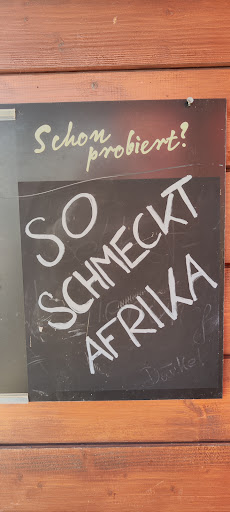 Schon
probiert?
SO
SCHMECKT
AFRIKA
Danke!